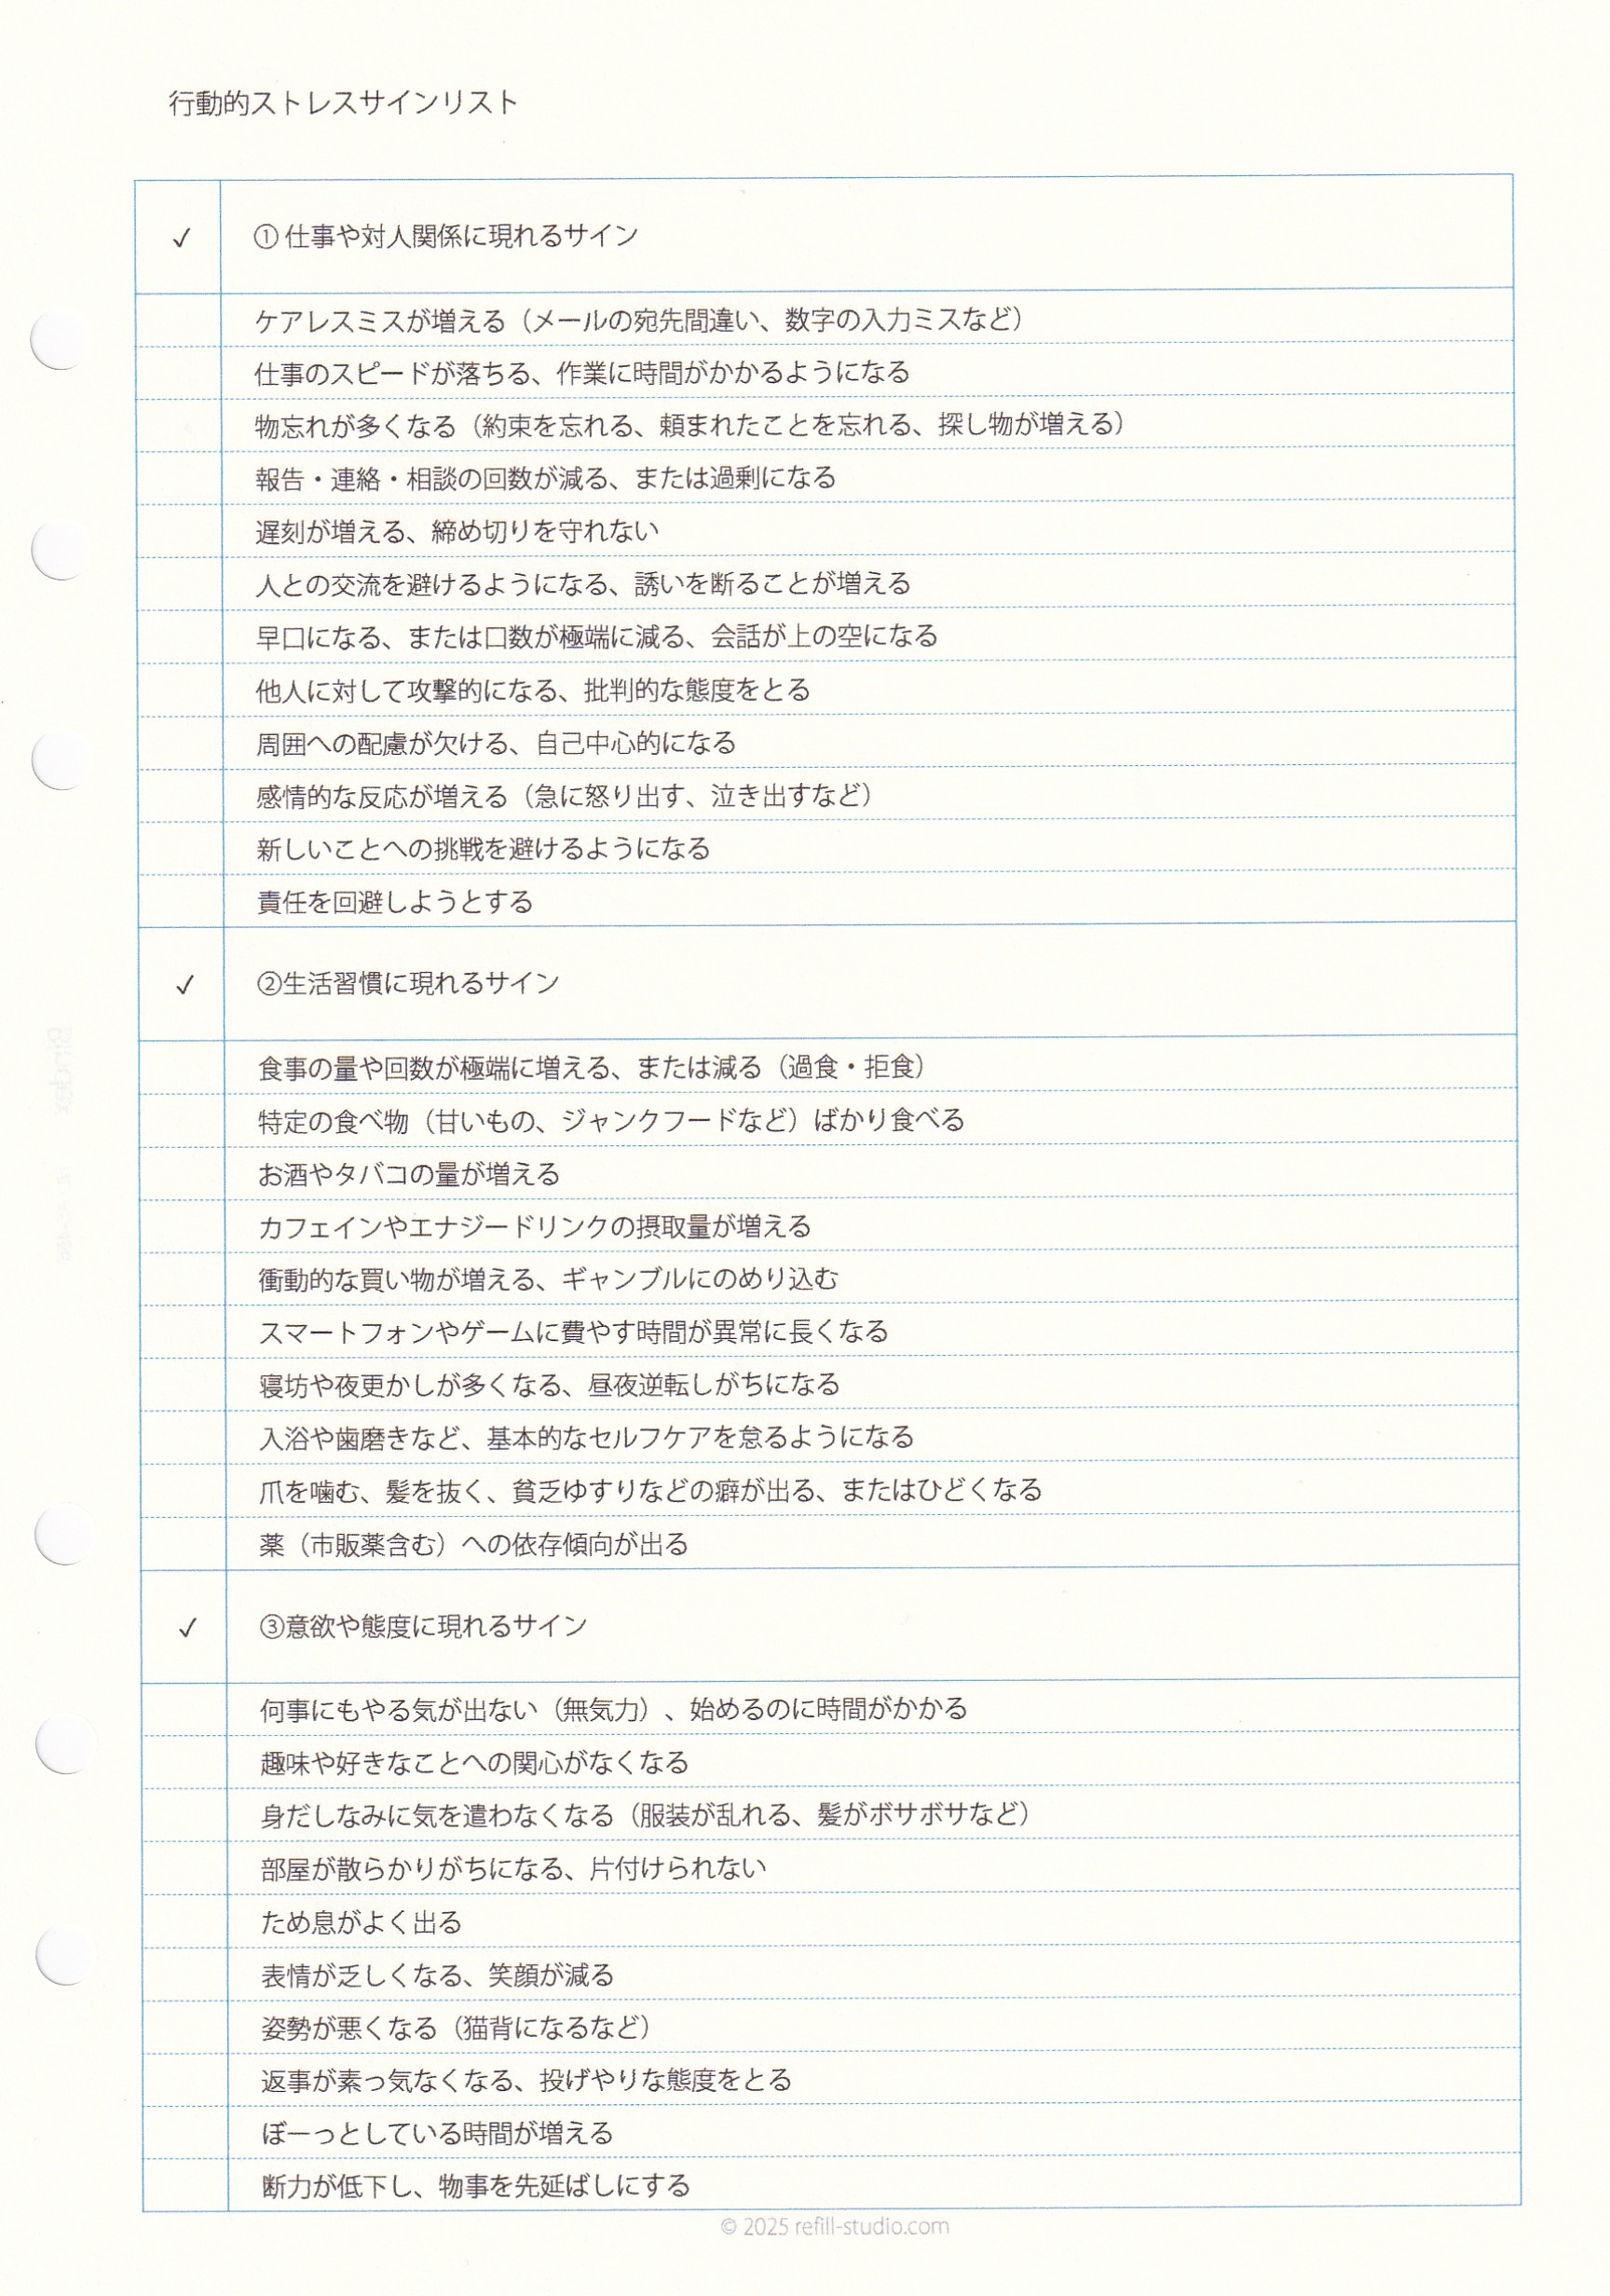 行動的ストレスサインリスト
✓ ① 仕事や対人関係に現れるサイン
ケアレスミスが増える（メールの宛先間違い、数字の入力ミスなど）
仕事のスピードが落ちる、作業に時間がかかるようになる
物忘れが多くなる（約束を忘れる、頼まれたことを忘れる、探し物が増える）
報告・連絡・相談の回数が減る、または過剰になる
遅刻が増える、締め切りを守れない
人との交流を避けるようになる、誘いを断ることが増える
早口になる、または口数が極端に減る、会話が上の空になる
他人に対して攻撃的になる、批判的な態度をとる
周囲への配慮が欠ける、自己中心的になる
感情的な反応が増える（急に怒り出す、泣き出すなど）
新しいことへの挑戦を避けるようになる
責任を回避しようとする
✓ ②生活習慣に現れるサイン
食事の量や回数が極端に増える、または減る（過食・拒食）
特定の食べ物（甘いもの、ジャンクフードなど）ばかり食べる
お酒やタバコの量が増える
カフェインやエナジードリンクの摂取量が増える
衝動的な買い物が増える、ギャンブルにのめり込む
スマートフォンやゲームに費やす時間が異常に長くなる
寝坊や夜更かしが多くなる、昼夜逆転しがちになる
入浴や歯磨きなど、基本的なセルフケアを怠るようになる
爪を噛む、髪を抜く、貧乏ゆすりなどの癖が出る、またはひどくなる
薬（市販薬含む）への依存傾向が出る
✓ ③意欲や態度に現れるサイン
何事にもやる気が出ない（無気力）、始めるのに時間がかかる
趣味や好きなことへの関心がなくなる
身だしなみに気を遣わなくなる（服装が乱れる、髪がボサボサなど）
部屋が散らかりがちになる、片付けられない
ため息がよく出る
表情が乏しくなる、笑顔が減る
姿勢が悪くなる（猫背になるなど）
返事が素っ気なくなる、投げやりな態度をとる
ぼーっとしている時間が増える
断力が低下し、物事を先延ばしにする
© 2025 refill-studio.com